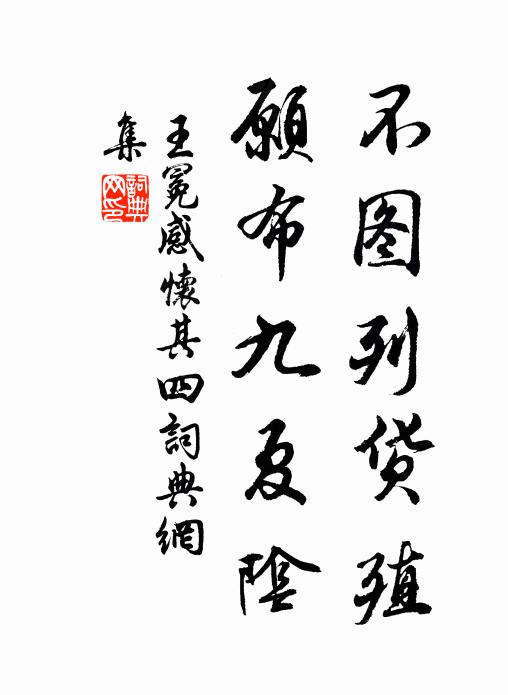 不图列货殖
愿布九夏陰
王冕感懷其四詞典網
集
詞典网印